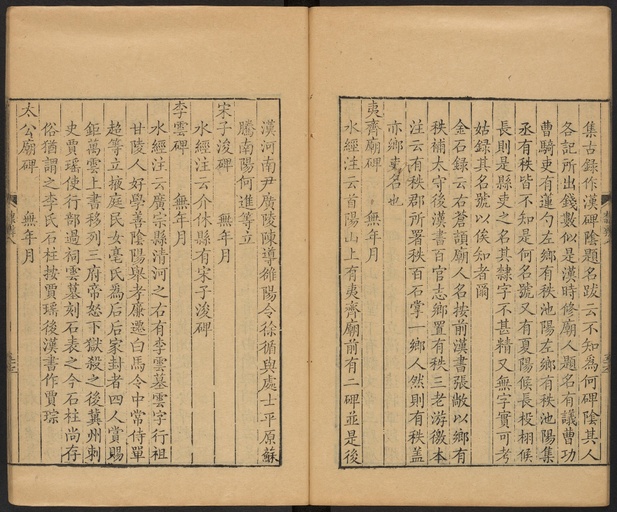 集古録作漢碑陰題名跋云不知為何碑陰其人
各記所出錢數似是漢時修廟人題名有議曹功
曹騎吏有蓮勺左鄉有秩池陽左鄉有秩池陽集
丞有秩皆不知是何名號又有夏陽候長祋栩候
長則是縣吏之名其隸字不甚精又無字實可考
姑録其名號以俟知者爾
金石録云右蒼頡廟人名按前漢書張敞以鄉有
秩補太守後漢書百官志鄉置有秩三老游徼本
注云有秩郡所署秩百石掌一鄉人然則有秩蓋
亦鄉吏名也
夷齊廟碑 無年月
水經注云首陽山上有夷齊廟前有二碑並是後
漢河南尹廣陵陳導雒陽令徐循與處士平原蘇
騰南陽何進等立
宋子浚碑 無年月
水經注云介休縣有宋子浚碑
李雲碑 無年月
水經注云廣宗縣清河之右有李雲墓雲字行祖
甘陵人好學善陰陽舉孝廉遷白馬令中常侍單
超等立掖庭民女亳氏為后后家封者四人賞賜
鉅萬雲上書移列三府帝怒下獄殺之後冀州刺
史賈瑤使行部過祠雲墓刻石表之今石柱尚存
俗猶謂之李氏石柱按賈瑤後漢書作賈琮
太公廟碑 無年月